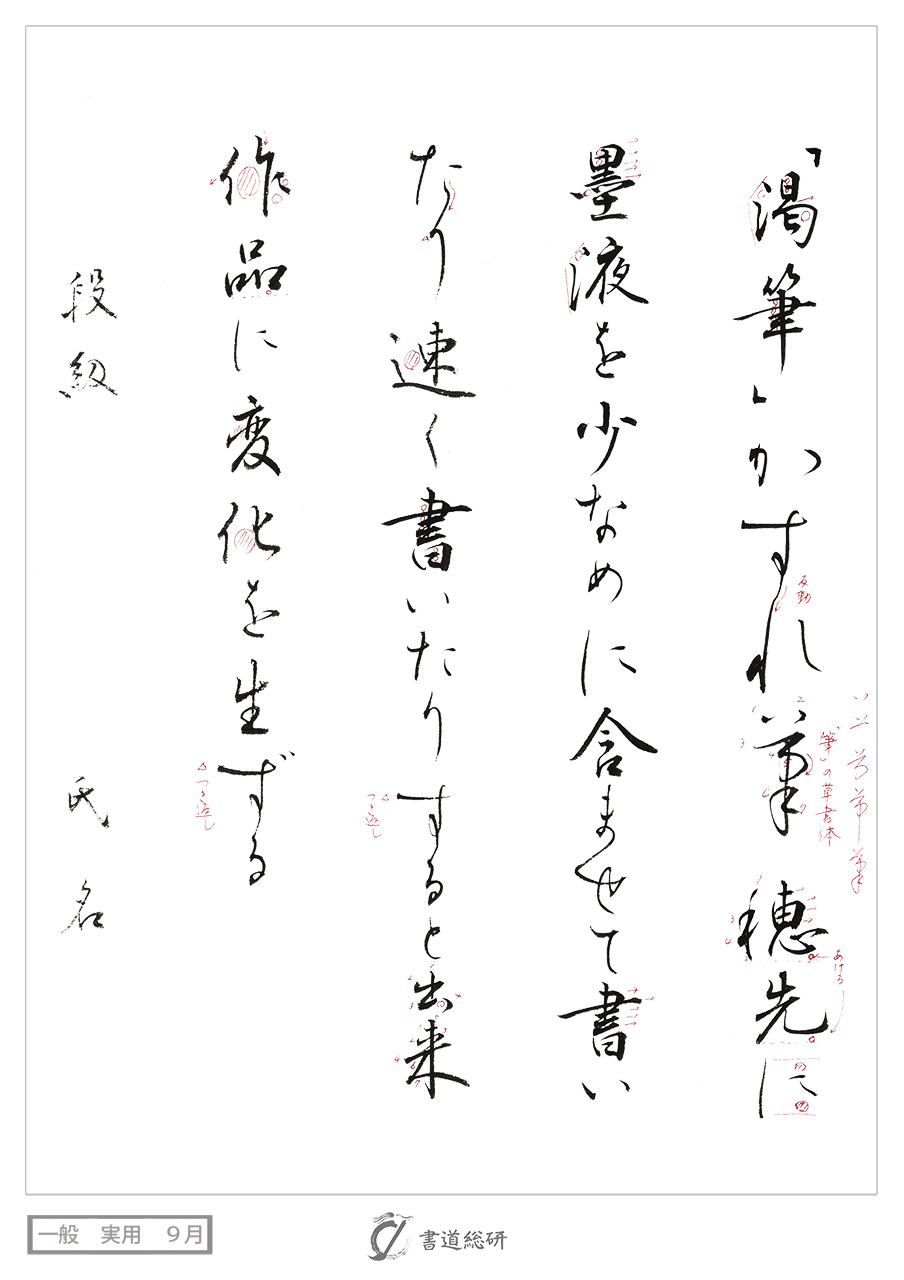 「渇筆」かすれ筆 穂先に
墨液を少なめに含ませて書い
たり速く書いたりすると出来
作品に変化を生ずる
段級 氏名
反動
「筆」の草書体
あける
つき返し
つき返し
一般 実用 9月
書道総研